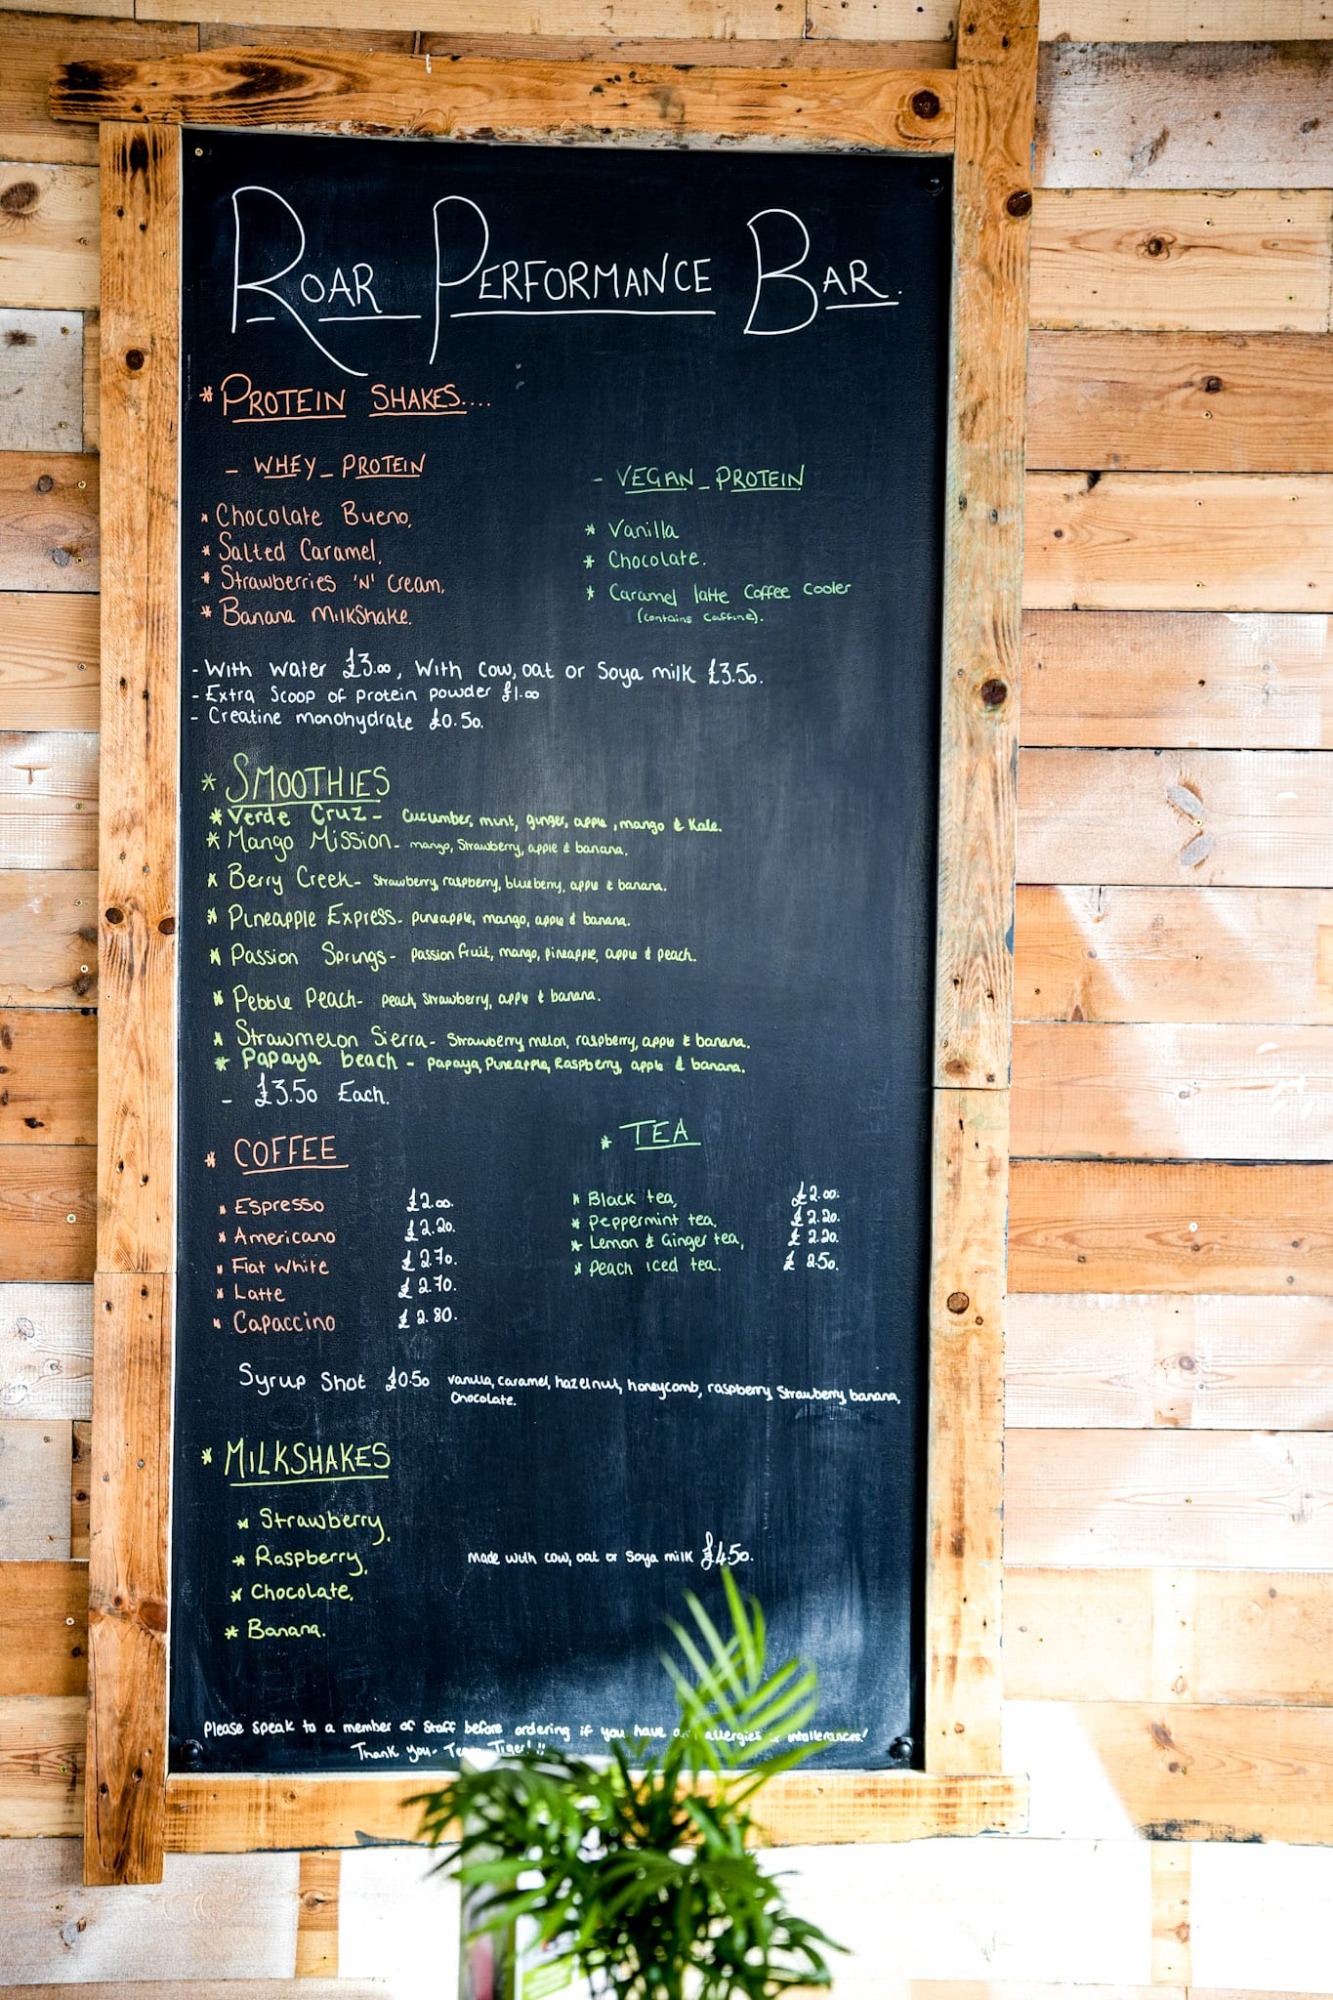 ROAR PERFORMANCE BAR.
* PROTEIN SHAKES....
- WHEY_PROTEIN
* Chocolate Bueno,
* Salted Caramel,
* Strawberries 'N' Cream,
* Banana Milkshake.
- VEGAN_PROTEIN
* Vanilla
* Chocolate.
* Caramel latte Coffee Cooler
(contains Caffine).
- With water £3.00, With Cow, oat or Soya milk £3.50.
- Extra Scoop of protein powder £1.00
- Creatine monohydrate £0.50.
* SMOOTHIES
* Verde Cruz - Cucumber, mint, ginger, apple, mango & Kale.
* Mango Mission - mango, Strawberry, apple & banana.
* Berry Creek - Strawberry, raspberry, blueberry, apple & banana.
* Pineapple Express - pineapple, mango, apple & banana.
* Passion Springs - passion fruit, mango, pineapple, apple & peach.
* Pebble Peach - peach, Strawberry, apple & banana.
* Strawmelon Sierra - Strawberry, melon, raspberry, apple & banana.
* Papaya beach - Papaya, Pineapple, Raspberry, apple & banana.
- £3.50 Each.
* COFFEE
* Espresso £2.00.
* Americano £2.20.
* Flat White £2.70.
* Latte £2.70.
* Capaccino £2.80.
* TEA
* Black tea, £2.00.
* Peppermint tea, £2.20.
* Lemon & Ginger tea, £2.20.
* Peach iced tea. £2.50.
Syrup Shot £0.50 vanilla, caramel, hazelnut, honeycomb, raspberry, Strawberry, banana,
Chocolate.
* MILKSHAKES
* Strawberry,
* Raspberry,
* Chocolate,
* Banana.
Made with cow, oat or Soya milk £4.50.
Please speak to a member of Staff before ordering if you have allergies intollerances!
Thank you - Team Tiger! !!